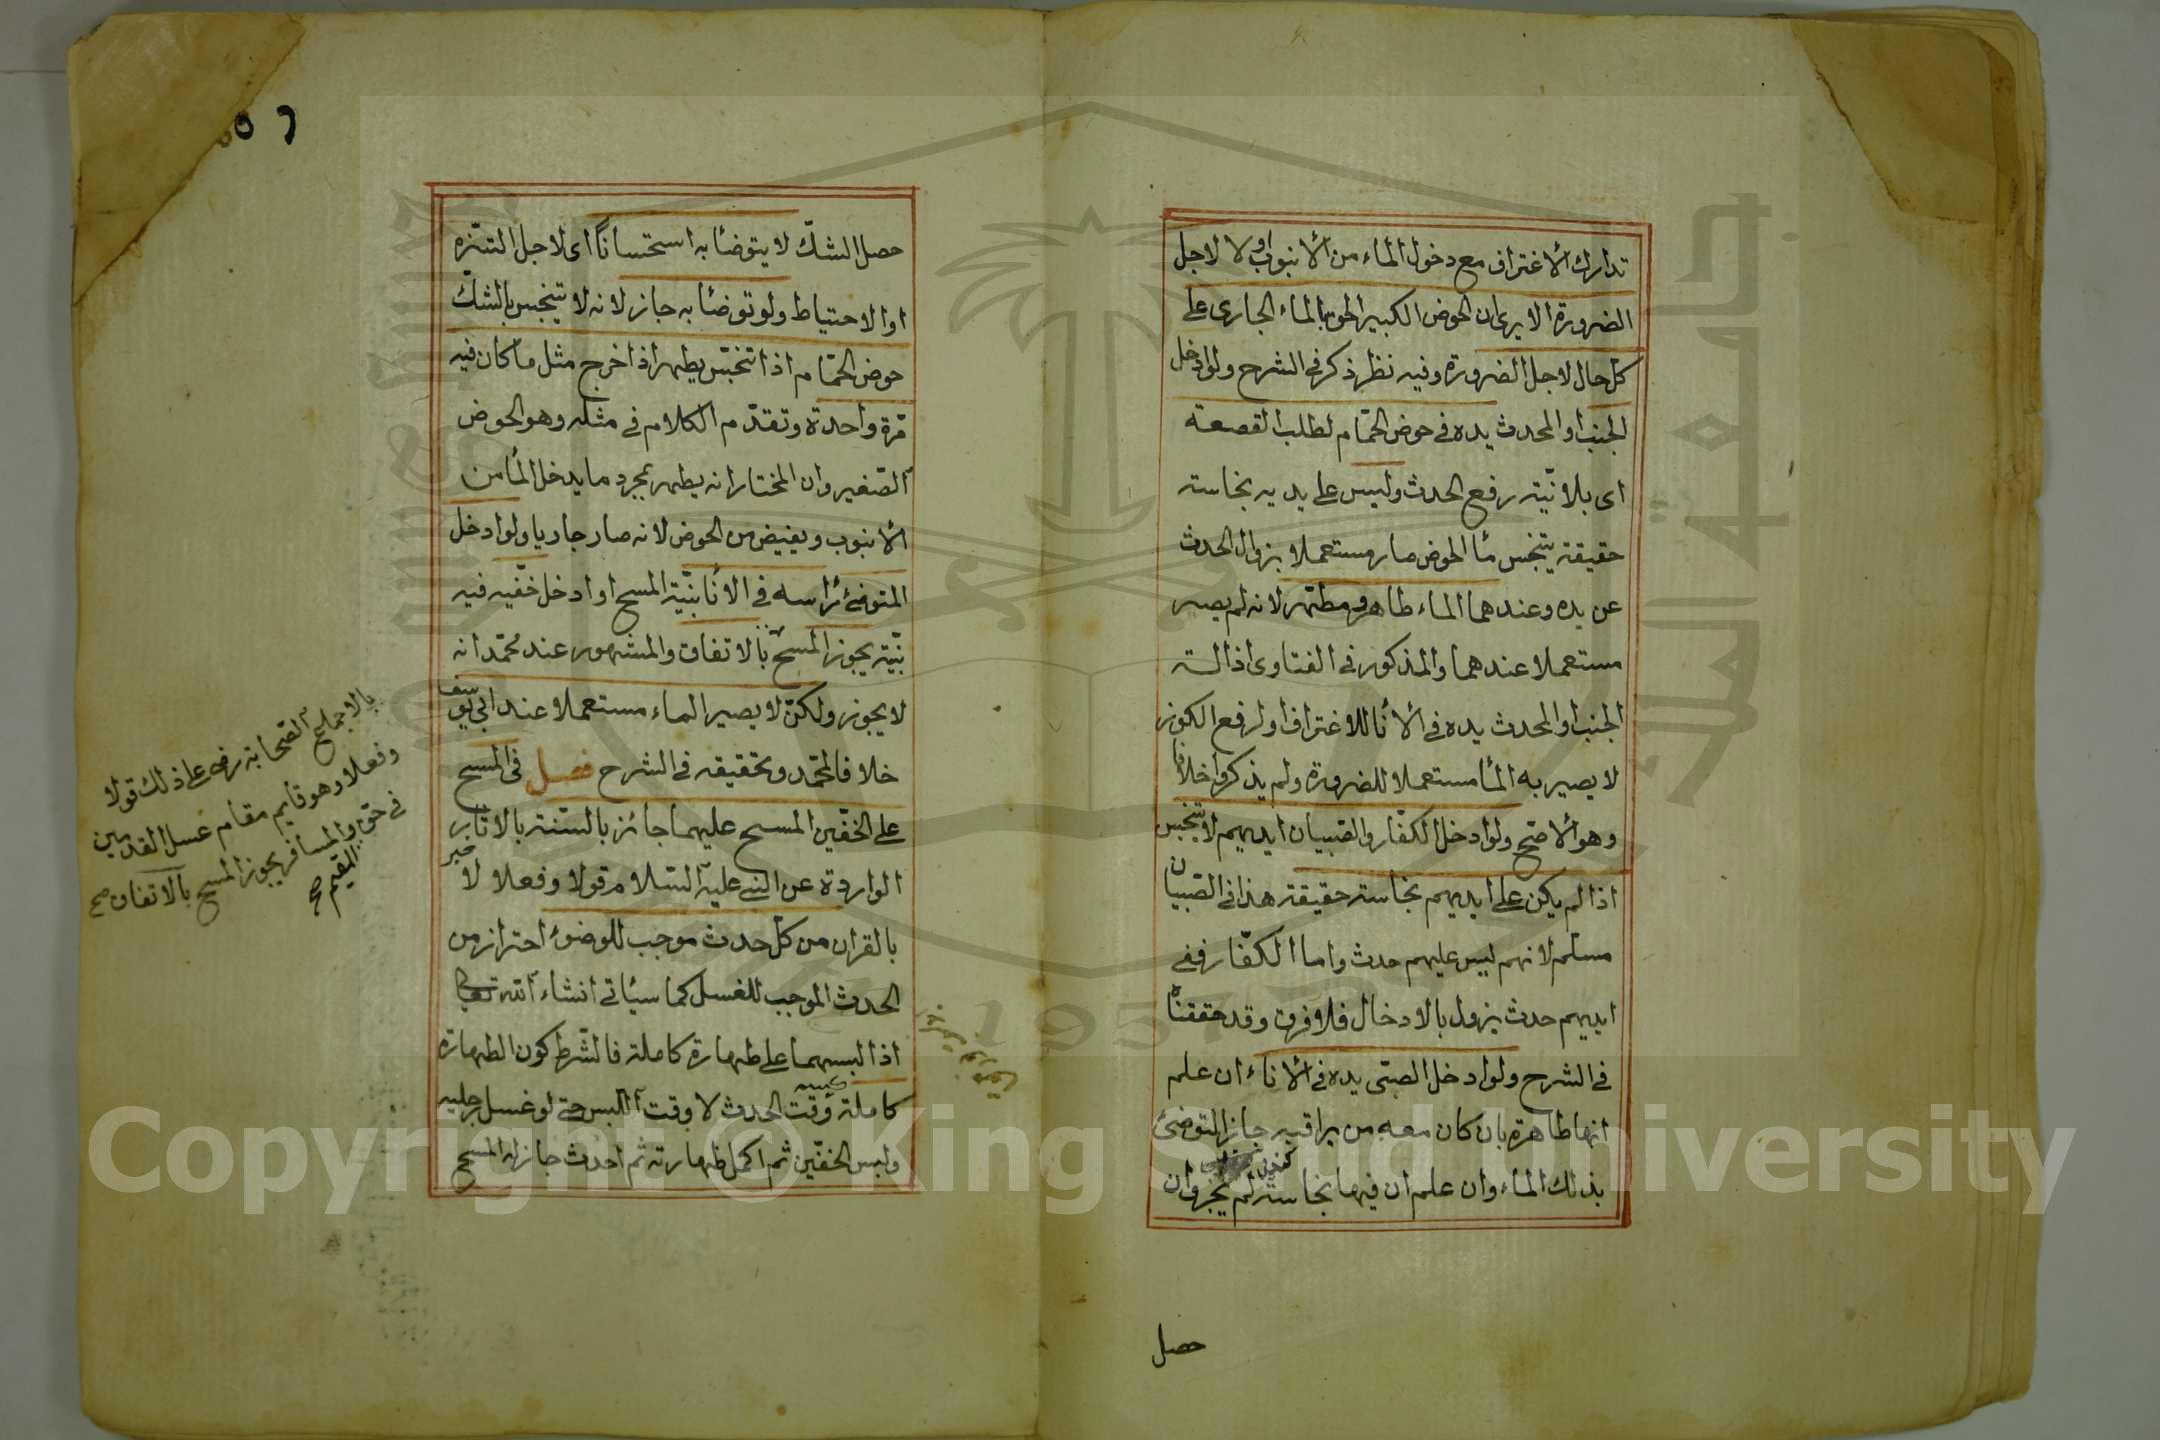 تدارك الاغتراف مع دخول الماء من الانبوب او لا لاجل
الضرورة الا يرى ان الحوض الكبير الحق بالماء الجارى على
كل حال لاجل الضرورة وفيه نظر ذكر فى الشرح ولو ادخل
الجنب او المحدث يده فى حوض الحمّام لطلب القصعة
اى بلا نيّة رفع الحدث وليس على يديه نجاسة
حقيقة يتنجس مأ الحوض صار مستعملا بزوال الحدث
عن يده وعندهما الماء طاهر ومطهّر لانه لم يصير
مستعملا عندهما والمذكور فى الفتاوى اذا
الجنب او المحدث يده فى الأنأ للاغتراف او لرفع الكوز
لا يصير به المأ مستعملا للضرورة ولم يذكروا خلافا
وهو الاصّح ولو ادخل الكفّار والصّبيان ايديهم لا يتنجس
اذا لم يكن على ايديهم نجاسة حقيقة هذا فى الصّبيان
مسلّم لانهم ليس عليهم حدث واما الكفّار ففى
ايديهم حدث يزول بالادخال فلا فرق وقد حققناه
فى الشرح ولو ادخل الصبّى يده فى الاناء ان علم
انها طاهرة بان كان معه من يراقبه جاز التوضئ
بذلك الماء وان علم ان فيها نجاسة لم يجز وان
حصل
حصل الشكّ لا يتوضأ به استحسانًا اى لاجل التنّزه
او الاحتياط ولو توضأ به جاز لانه لا يتنجس بالشكّ
حوض الحمّام اذا تنجّس يطهر اذا خرج مثل ما كان فيه
مّرة واحدة وتقدّم الكلام فى مثله وهو الحوض
الصّغير وان المختار انه يطهر بمجرد ما يدخل المأ من
الأنبوب ويفيض من الحوض لانه صار جاريا ولو ادخل
المتوضئ رأسه فى الانأ بنيّة المسح او ادخل خفّيه فيه
بنّية يجوز المسح بالاتفاق والمشهور عند محمّد انه
لا يجوز ولكنّ لا يصير الماء مستعملا عند ابى يوسف
خلافا لمحّمد وتحقيقه فى الشرح فصل فى المسح
على الخفّين المسح عليهما جائز بالسّنة بالاثار
الواردة عن النبى عليه السّلام قولا وفعلا لا
بالقران من كلّ حدث موجب للوضوء احتراز من
الحدث الموجب للغسل كما سيأتى انشاء الله تعالى
اذا لبسهما على طهارة كاملة فالشّرط كون الطهارة
كاملة وقت الحدث لا وقت اللّبس حتى لو غسل رجليه
ولبس الخفّين ثم اكمل طهارته ثم احدث جاز له المسح
بالاجماع الصّحابة رضى على ذلك قولا
وفعلا وهو قايم مقام غسل القدمين
فى حق المسافر يجوز المسح بالاتفاق صح
والمقيم صح